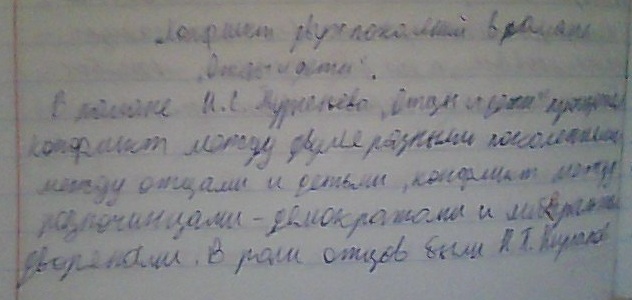 Конфликт двух поколений в романе
„Отцы и дети".
В романе И.С. Тургенева „Отцы и дети" показан
конфликт между двумя разными поколениями
между отцами и детьми, конфликт между
разночинцами-демократами и либералами
дворянами. В роли отцов были П.П. Кирсанов